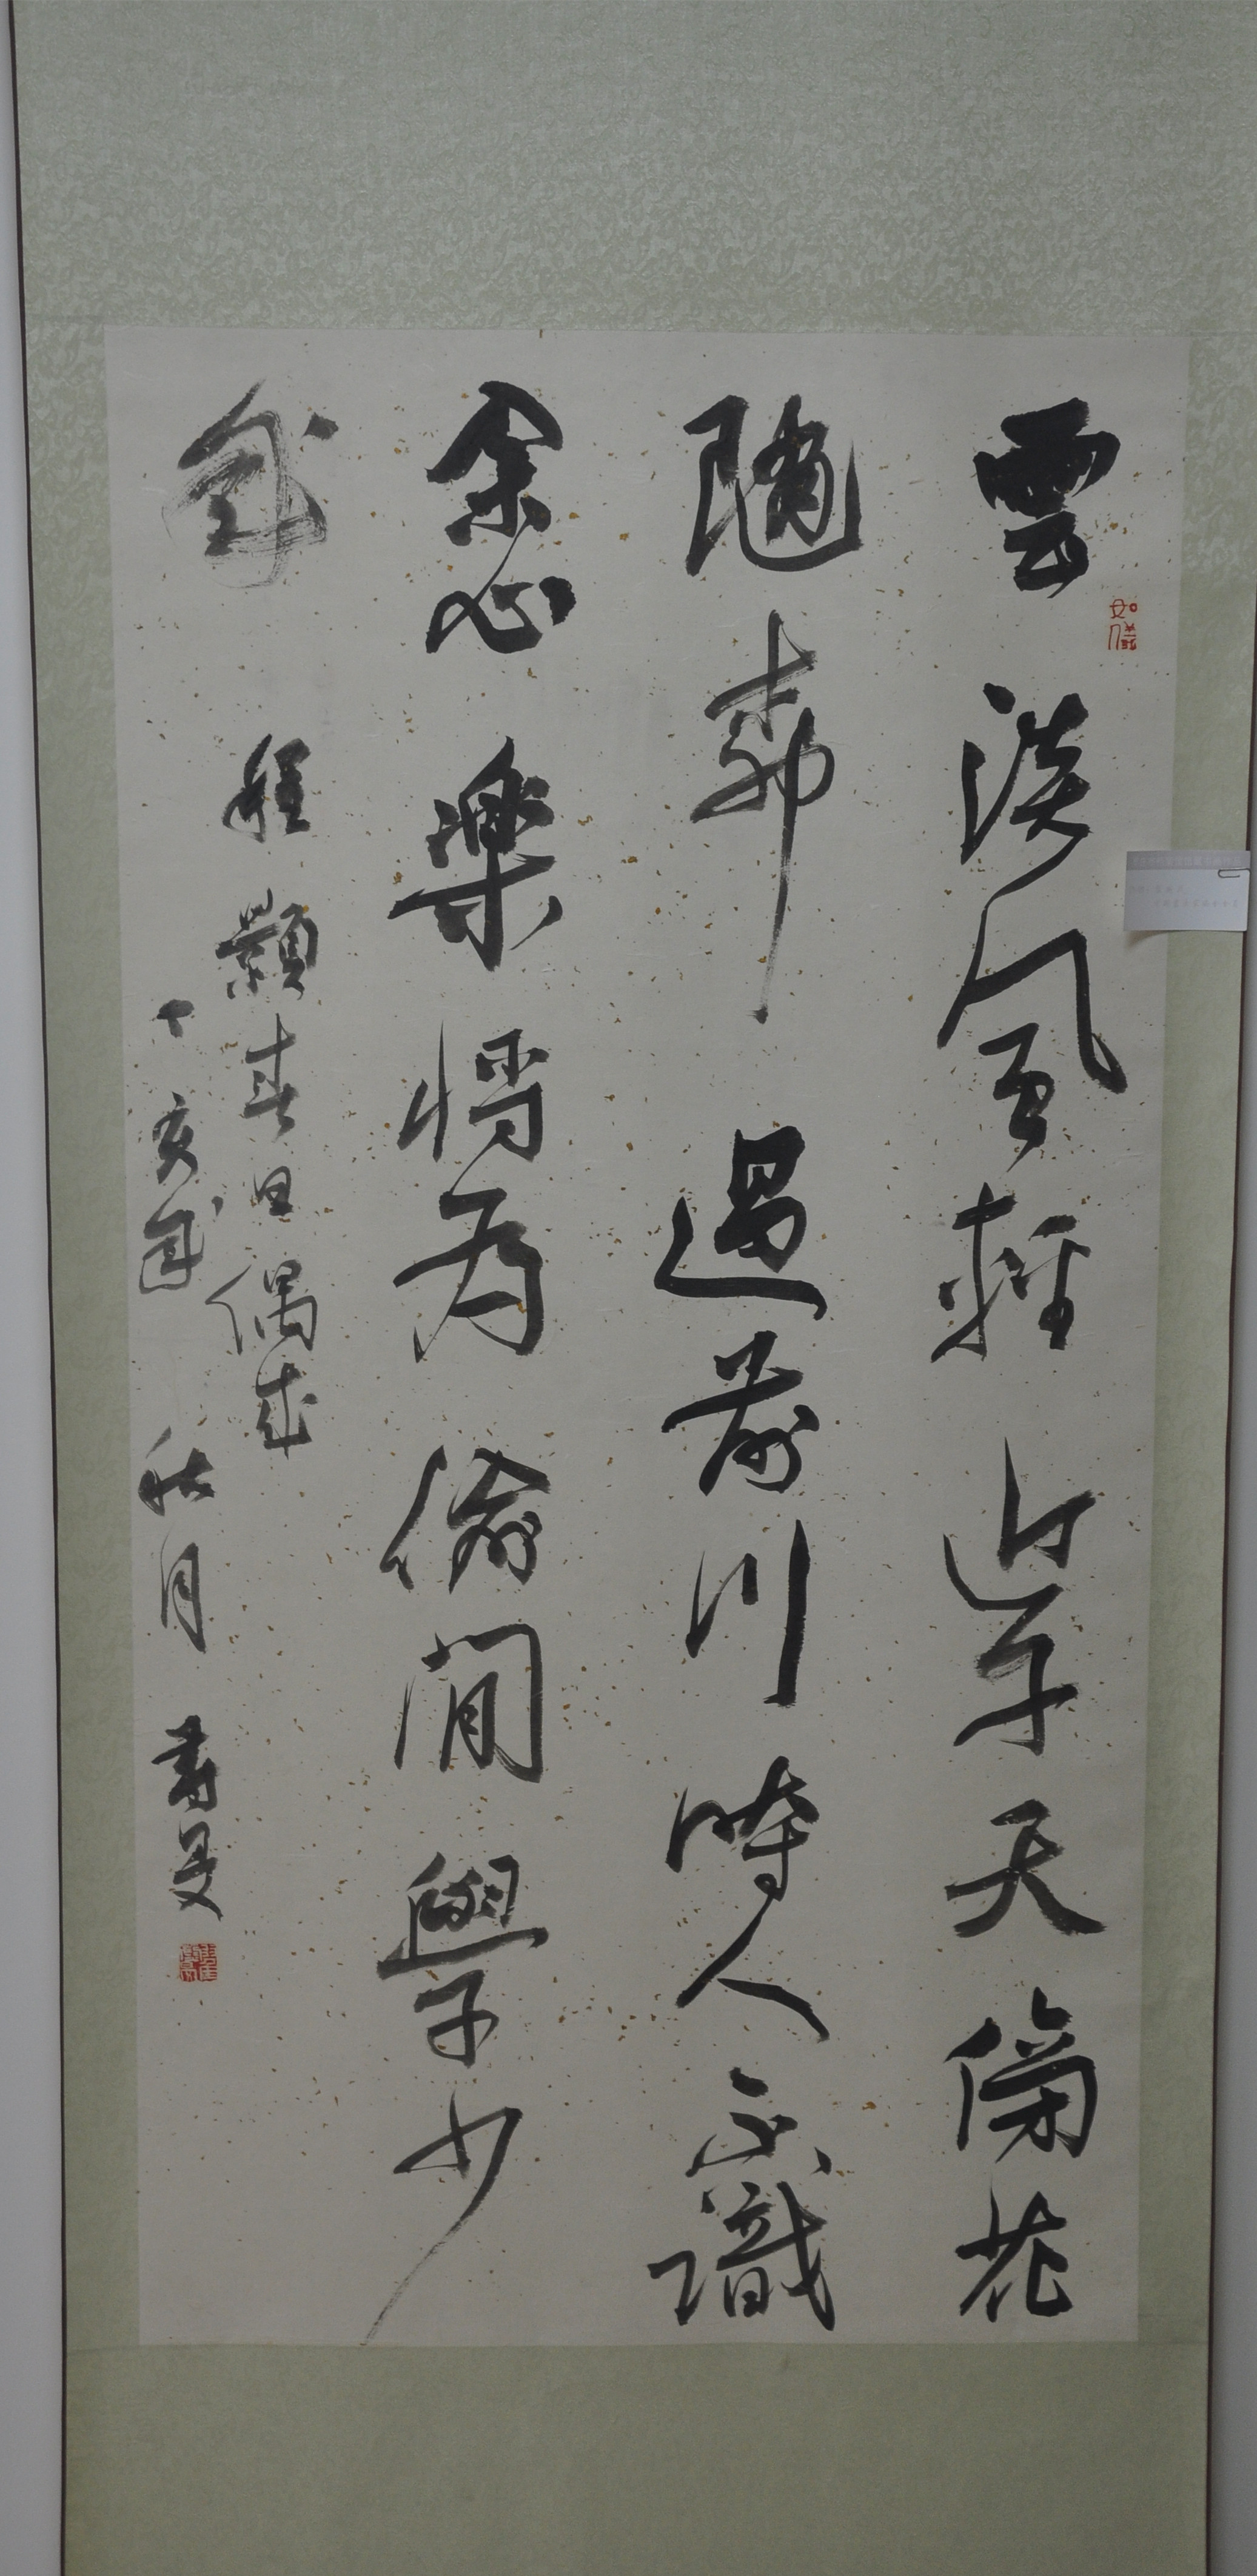 雲淡風輕近午天傍花
隨柳過前川時人不識
余心樂將為偷閒學少
年
程顥春日偶成
丁亥年秋月